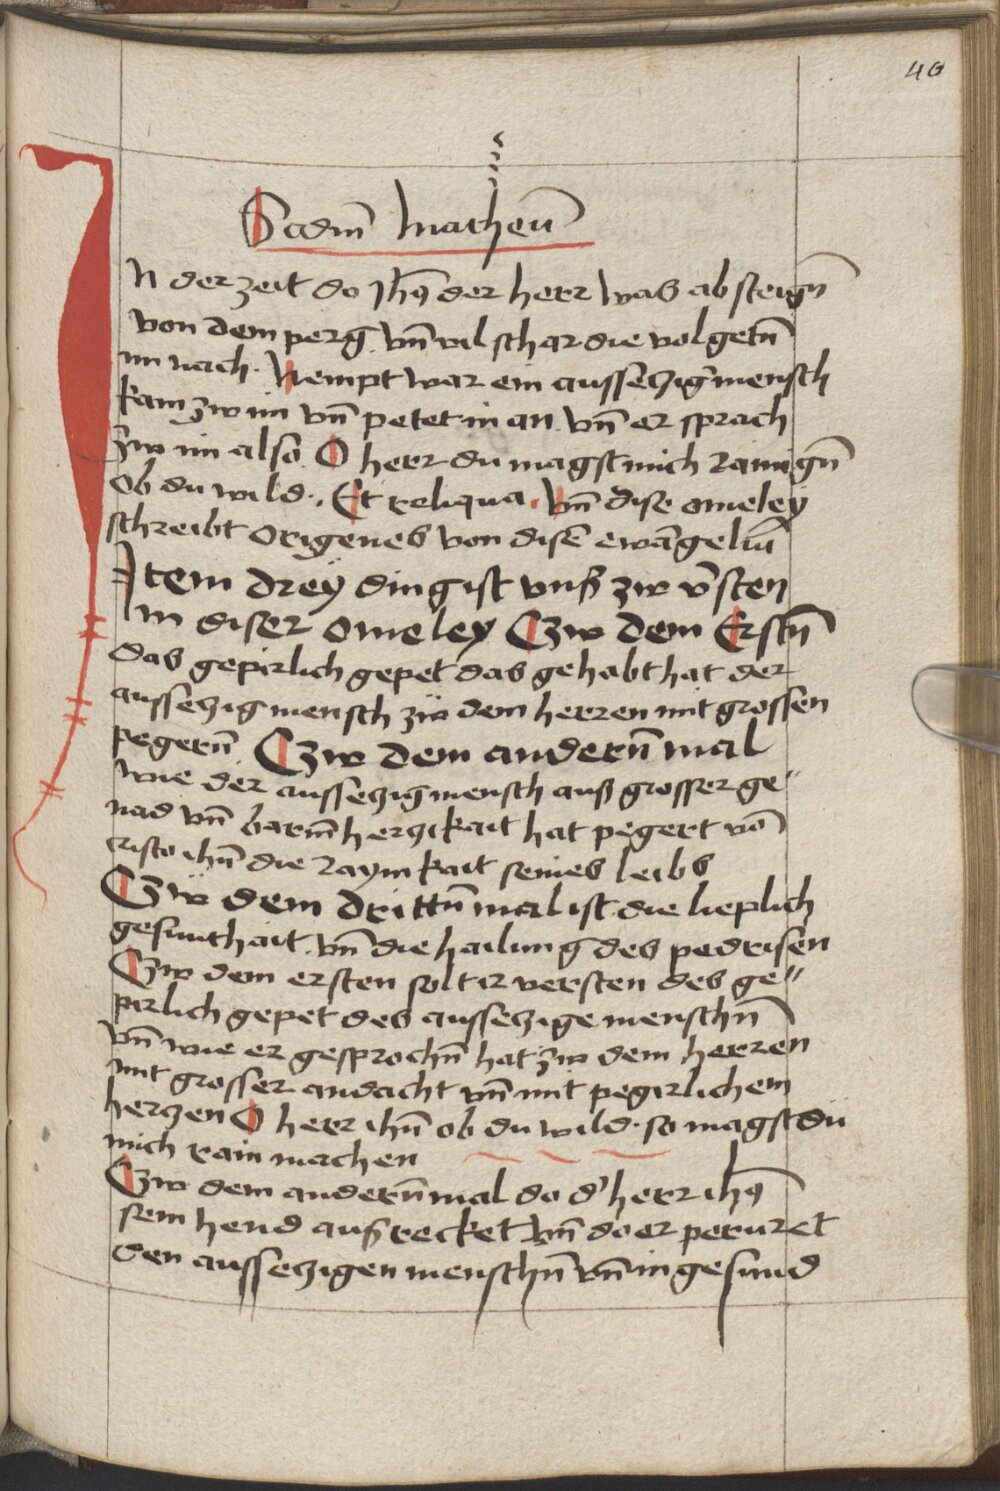 40
Scdm̄ Matheū
IN der zeit do Jhꝰ der herr was ab steign̄
von dem perg vn̄ vil schar die volgetn̄
im nach. Nempt war ein aussetzig mensch
kam zw im vn̄ petet in an vn̄ er sprach
zw im also O herr du magst mich rainign̄
ob du wild. Et reliqua. vn̄ dise omeley
schreibt origenes von disē ewāgeliū
Item dreÿ ding ist vnß zw v̄sten
In diser omeley Czw dem Erstn̄
das gepirlich gepet das gehabt hat der
aussetzig mensch zw dem herren mit grossen
pegerñ Czw dem anderñ mal
wie der aussetzig mensch auß grosser ge〃
nad vn̄ barm̄hertzikait hat pegert vō
cristo ihū die raynikait seines leibs
Czw dem drittn̄ mal ist die lieplich
gesunthait vn̄ die hailung des pedrisen
Czw dem ersten solt ir versten des ge〃
pirlich gepet des aussetzige menschn̄
vn̄ wie er gesprochn̄ hat zw dem herren
mit grosser andacht vn̄ mit pegirlichem
hertzen O herr ihū ob du wild. so magst dü
mich rain machen
Czw dem anderñ mal do d' herr ihꝰ
sein hend auß recket vn̄ do er peruret
den aussetzigen menschn̄ vn̄ in gesund